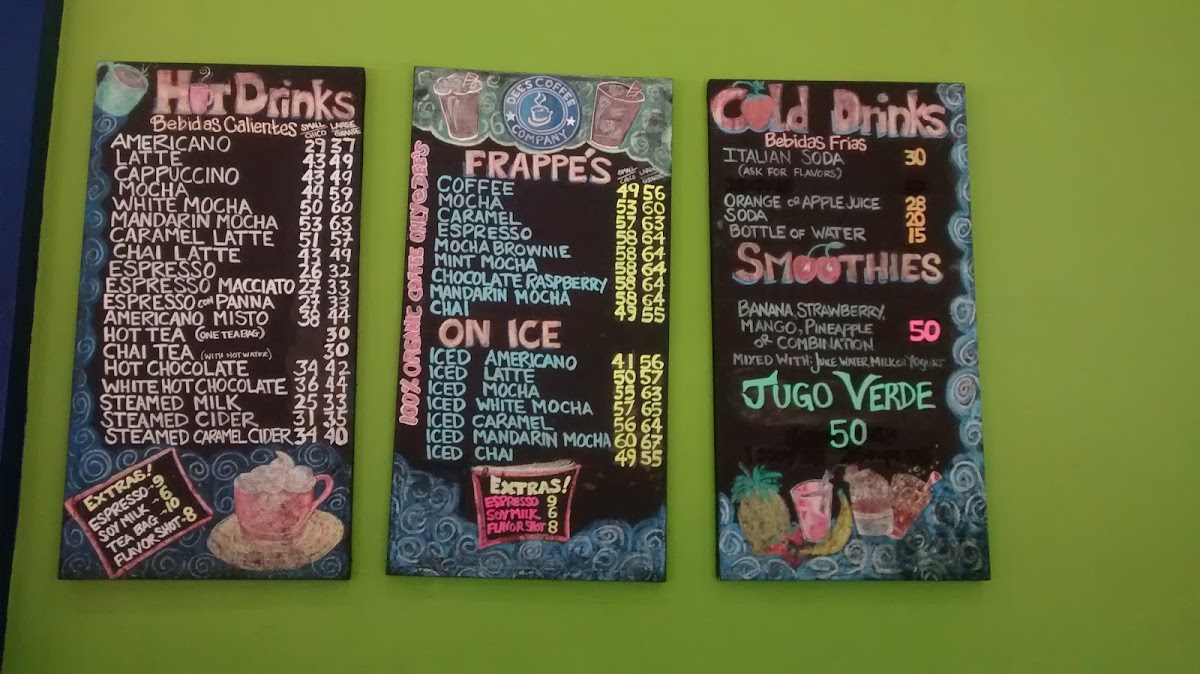 Hot Drinks
Bebidas Calientes SMALL CHICO LARGE GRANDE
AMERICANO 29 37
LATTE 43 49
CAPPUCCINO 43 49
MOCHA 49 59
WHITE MOCHA 50 60
MANDARIN MOCHA 53 63
CARAMEL LATTE 51 57
CHAI LATTE 43 49
ESPRESSO 26 32
ESPRESSO MACCIATO 27 33
ESPRESSO CON PANNA 27 33
AMERICANO MISTO 38 44
HOT TEA (ONE TEA BAG) 30
CHAI TEA (WITH HOT WATER) 30
HOT CHOCOLATE 34 42
WHITE HOT CHOCOLATE 36 44
STEAMED MILK 25 33
STEAMED CIDER 31 35
STEAMED CARAMEL CIDER 34 40
EXTRAS!
ESPRESSO-9
SOY MILK 6
TEA BAG -10
FLAVOR SHOT-8
DEE'S COFFEE
COMPANY
100% ORGANIC COFFEE ONLY @ DEE'S
FRAPPE'S SMALL CHICO LARGE GRANDE
COFFEE 49 56
MOCHA 53 60
CARAMEL 57 63
ESPRESSO 58 64
MOCHA BROWNIE 58 64
MINT MOCHA 58 64
CHOCOLATE RASPBERRY 58 64
MANDARIN MOCHA 58 64
CHAI 49 55
ON ICE
ICED AMERICANO 41 56
ICED LATTE 50 57
ICED MOCHA 55 63
ICED WHITE MOCHA 57 65
ICED CARAMEL 56 64
ICED MANDARIN MOCHA 60 67
ICED CHAI 49 55
EXTRAS!
ESPRESSO 9
SOY MILK 6
FLAVOR SHOT 8
Cold Drinks
Bebidas Frias
ITALIAN SODA 30
(ASK FOR FLAVORS)
ORANGE OR APPLE JUICE 28
SODA 20
BOTTLE OF WATER 15
SMOOTHIES
BANANA, STRAWBERRY,
MANGO, PINEAPPLE 50
OR COMBINATION
MIXED WITH: JUICE WATER, MILK OR YOGURT
JUGO VERDE
50